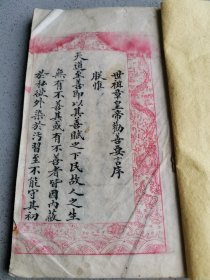 世祖章皇帝勸善要言序
朕惟
天道至善即以其善賦之下民故人之生
無有不善其或有不善者皆因内蔽
於私欲外染於污習至不能守其初